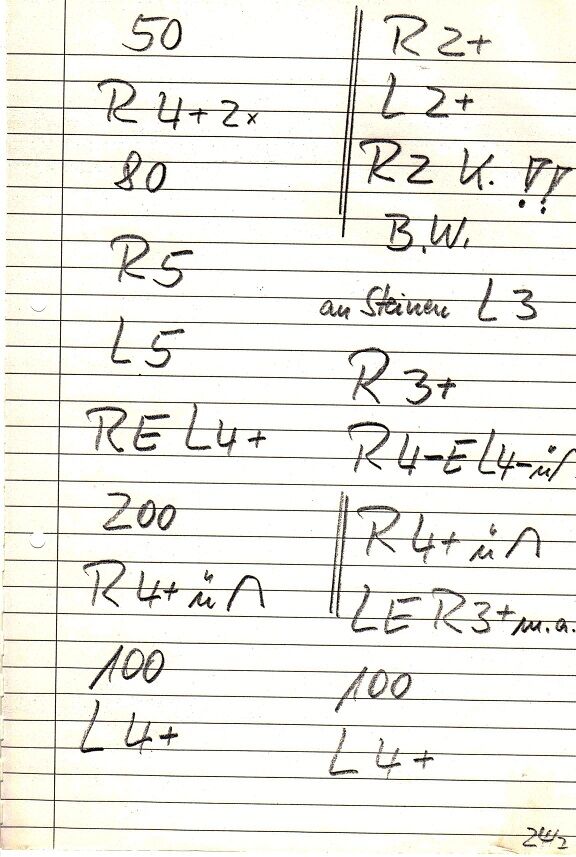 50
R 4+ 2x
80
R5
L5
RE L4+
200
R 4+ ü∩
100
L 4+
R 2+
L 2+
R2 K. !!
B.W.
an Steinen L 3
R 3+
R4-E L4- ü∩
R 4+ ü∩
LE R3+ m.a.
100
L 4+